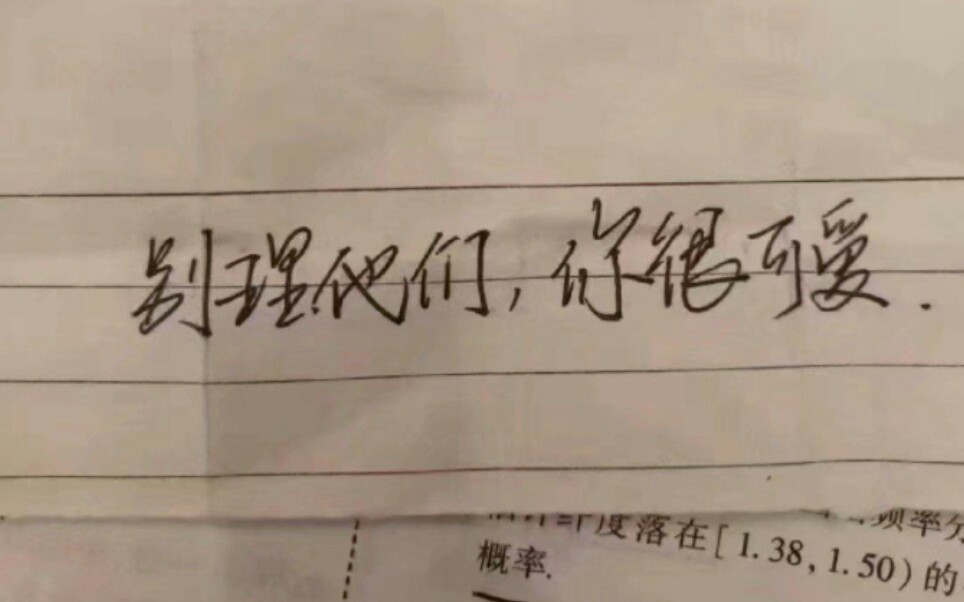 别理他们,你很可爱.
频率分
度落在[1.38,1.50)的
概率.